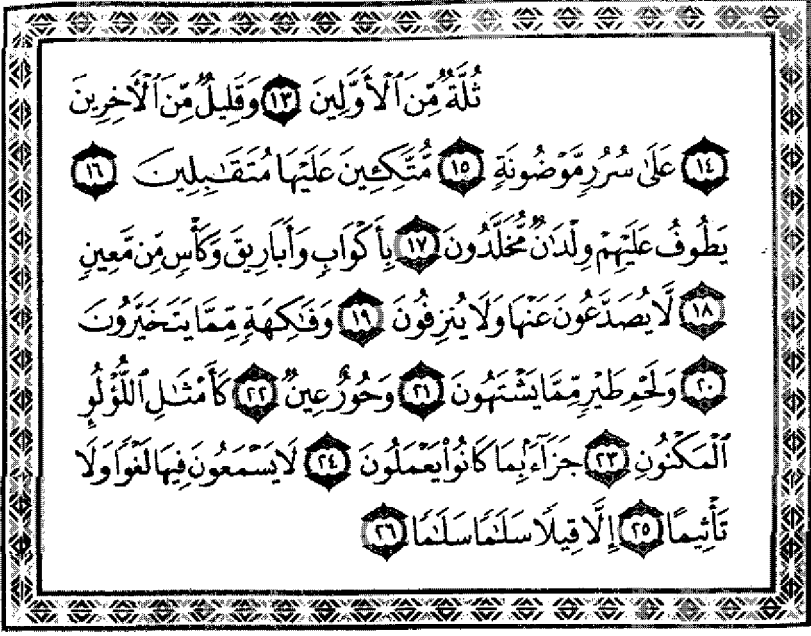 ثُلَّةٌ مِّنَ ٱلْأَوَّلِينَ ١٣ وَقَلِيلٌ مِّنَ ٱلْأَخِرِينَ
١٤ عَلَىٰ سُرُرٍ مَّوْضُونَةٍ ١٥ مُّتَّكِـِٔينَ عَلَيْهَا مُتَقَـٰبِلِينَ ١٦
يَطُوفُ عَلَيْهِمْ وِلْدَٰنٌ مُّخَلَّدُونَ ١٧ بِأَكْوَابٍ وَأَبَارِيقَ وَكَأْسٍ مِّن مَّعِينٍ
١٨ لَّا يُصَدَّعُونَ عَنْهَا وَلَا يُنزِفُونَ ١٩ وَفَـٰكِهَةٍ مِّمَّا يَتَخَيَّرُونَ
٢٠ وَلَحْمِ طَيْرٍ مِّمَّا يَشْتَهُونَ ٢١ وَحُورٌ عِينٌ ٢٢ كَأَمْثَـٰلِ ٱللُّؤْلُؤِ
ٱلْمَكْنُونِ ٢٣ جَزَآءًۢ بِمَا كَانُوا۟ يَعْمَلُونَ ٢٤ لَا يَسْمَعُونَ فِيهَا لَغْوًا وَلَا
تَأْثِيمًا ٢٥ إِلَّا قِيلًا سَلَـٰمًا سَلَـٰمًا ٢٦